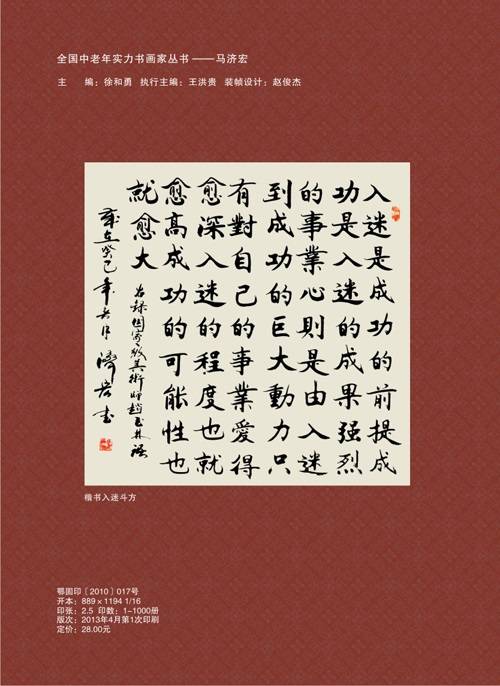 全国中老年实力书画家丛书——马济宏
主 编：徐和勇 执行主编：王洪贵 装帧设计：赵俊杰
入迷是成功的前提成
功是入迷的成果强烈
的事業心則是由入迷
到成功的巨大動力只
有對自己的事業愛得
愈深入迷的程度也就
愈高成功的可能性也
就愈大
右録国家级美術師趙玉林
歲在癸巳年 月濟宏书
楷书入迷斗方
鄂图印〔2010〕017号
开本：889×1194 1/16
印张：2.5 印数：1-1000册
版次：2013年4月第1次印刷
定价：28.00元